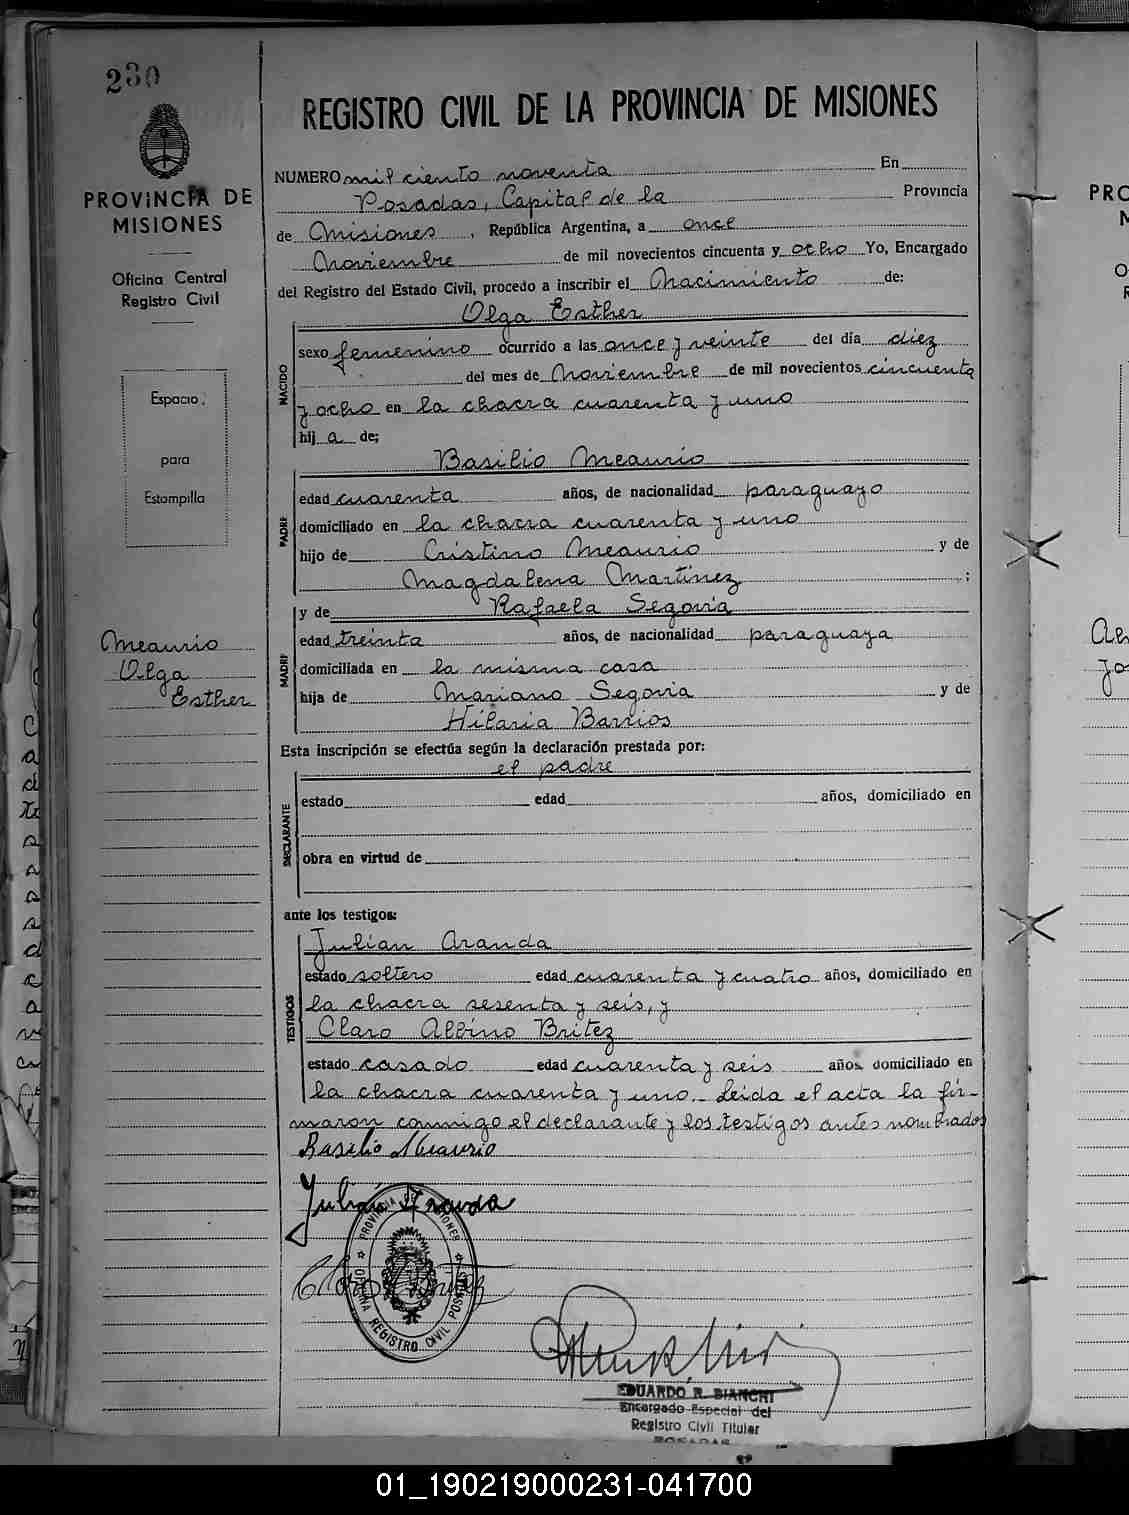 230
PROVINCIA DE
MISIONES
Oficina Central
Registro Civil
Espacio
para
Estampilla
Meaurio
Olga
Esther
REGISTRO CIVIL DE LA PROVINCIA DE MISIONES
NUMERO mil ciento noventa En
Posadas, Capital de la Provincia
de Misiones, República Argentina, a once
Noviembre de mil novecientos cincuenta y ocho Yo, Encargado
del Registro del Estado Civil, procedo a inscribir el Nacimiento de:
Olga Esther
NACIDO
sexo femenino ocurrido a las once y veinte del día diez
del mes de Noviembre de mil novecientos cincuenta
y ocho en la chacra cuarenta y uno
hij a de;
Basilio Meaurio
PADRE
edad cuarenta años, de nacionalidad paraguayo
domiciliado en la chacra cuarenta y uno
hijo de Cristino Meaurio y de
Magdalena Martinez ;
y de Rafaela Segovia
MADRE
edad treinta años, de nacionalidad paraguaya
domiciliada en la misma casa
hija de Mariano Segovia y de
Hilaria Barrios
Esta inscripción se efectúa según la declaración prestada por:
el padre
DECLARANTE
estado edad años, domiciliado en
obra en virtud de
ante los testigos:
Julian Aranda
TESTIGOS
estado soltero edad cuarenta y cuatro años, domiciliado en
la chacra sesenta y seis, y
Claro Albino Britez
estado casado edad cuarenta y seis años domiciliado en
la chacra cuarenta y uno.- Leida el acta la fir-
maron conmigo el declarante y los testigos antes nombrados
Basilio Meaurio
Julián Aranda
Claro Britez
PROVINCIA DE MISIONES
OFICINA REGISTRO CIVIL POSADAS
EDUARDO R. BIANCHI
Encargado Especial del
Registro Civil Titular
POSADAS
01_190219000231-041700